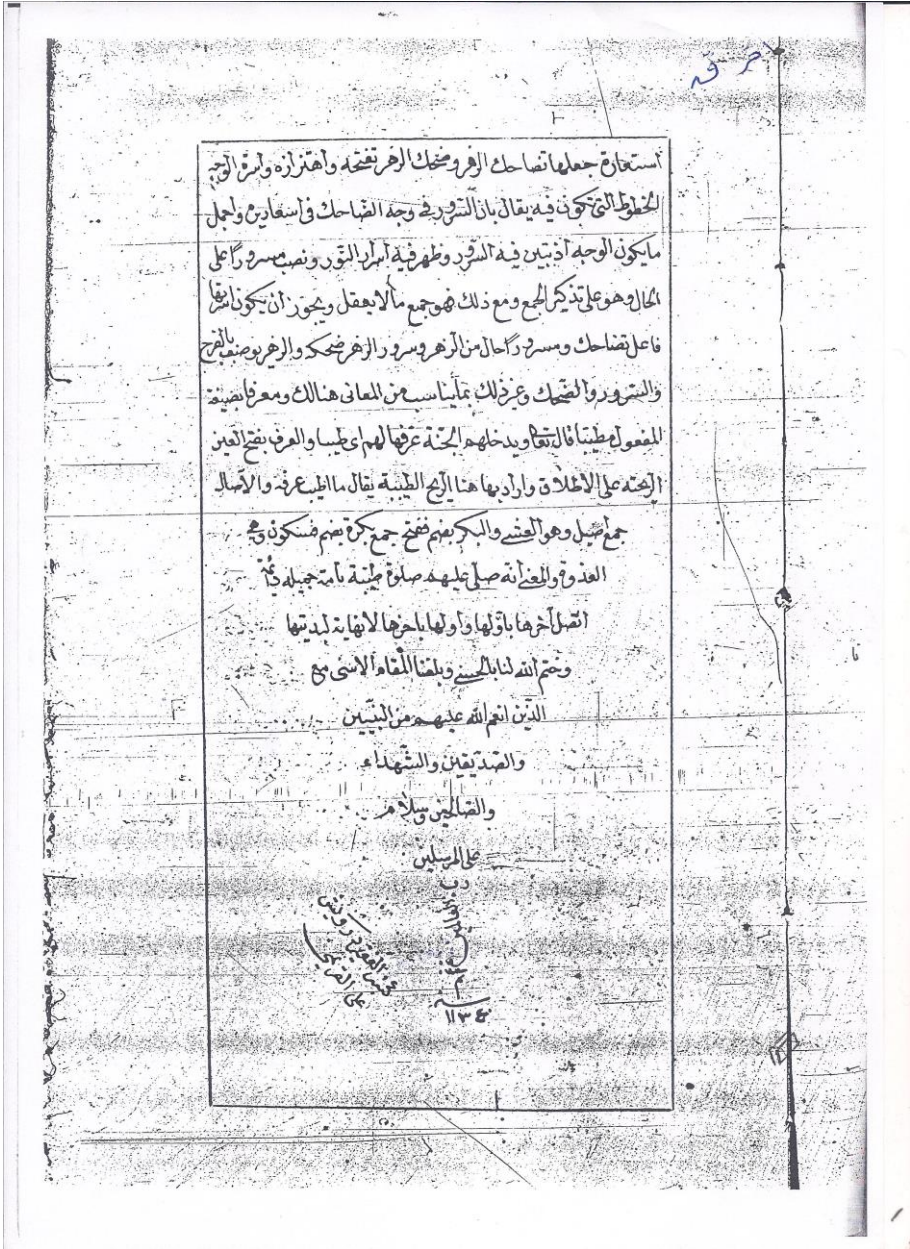 اخر ق
استعارة جعلها تضاحك الزهر وضحك الزهر تفتحه واهتزازه واسرة الوجه
الخطوط التي تكون فيه يقال بان السرور في وجه الضاحك في اسعادين واجمل
مايكون الوجه اذ تبين فيه السرور وظهر فيه اسرار النور ونصب مسرورًا على
الحال وهو على تذكير الجمع ومع ذلك فهو جمع مالايعقل ويجوز أن يكون اسرتها
فاعل تضاحك ومسرورًا حال من الزهر وسرور الزهر ضحكه والزهر يوصف بالفرح
والسرور والضحك وغير ذلك بمايناسب من المعانى هنالك ومعرفا بصيغة
المفعول مطيبا قال تعا ويدخلهم الجنة عرفها لهم اى طيبا والعرف بفتح العين
الريحته على الاطلاق واراد بها هنا الريح الطيبة يقال مااطيب عرفه والآصال
جمع أصيل وهو العشى والبكر بضم ففتح جمع بكرة بضم فسكون وهى
الغدوة والمعنى أنه صلى عليهم صلوة طيبة تامة جميله دائمة
اتصل آخرها باولها واولها باخرها لانهاية لبديتها
وختم الله لنا بالحسنى وبلغنا المقام الاسنى مع
الذين انعم الله عليهم من النبيين
والصديقين والشهداء
والصالحين وسلام
على المرسلين
رب العالمين
سنة ١١٣٤
الفقير درويش
على القريمى